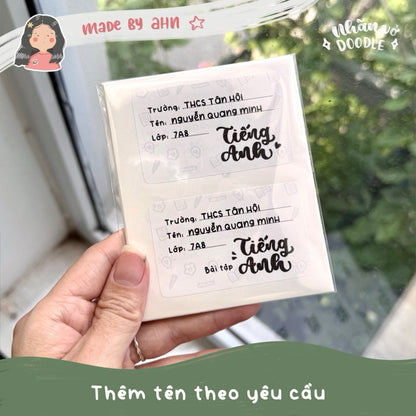 MADE BY AHN
Nhãn vở
DOODLE
Trường: THCS TÂN HỘI
Tên: nguyễn quang minh
Lớp: 7A8
Tiếng
Anh
Trường: THCS TÂN HỘI
Tên: nguyễn quang minh
Lớp: 7A8
Bài tập
Tiếng
Anh
Thêm tên theo yêu cầu